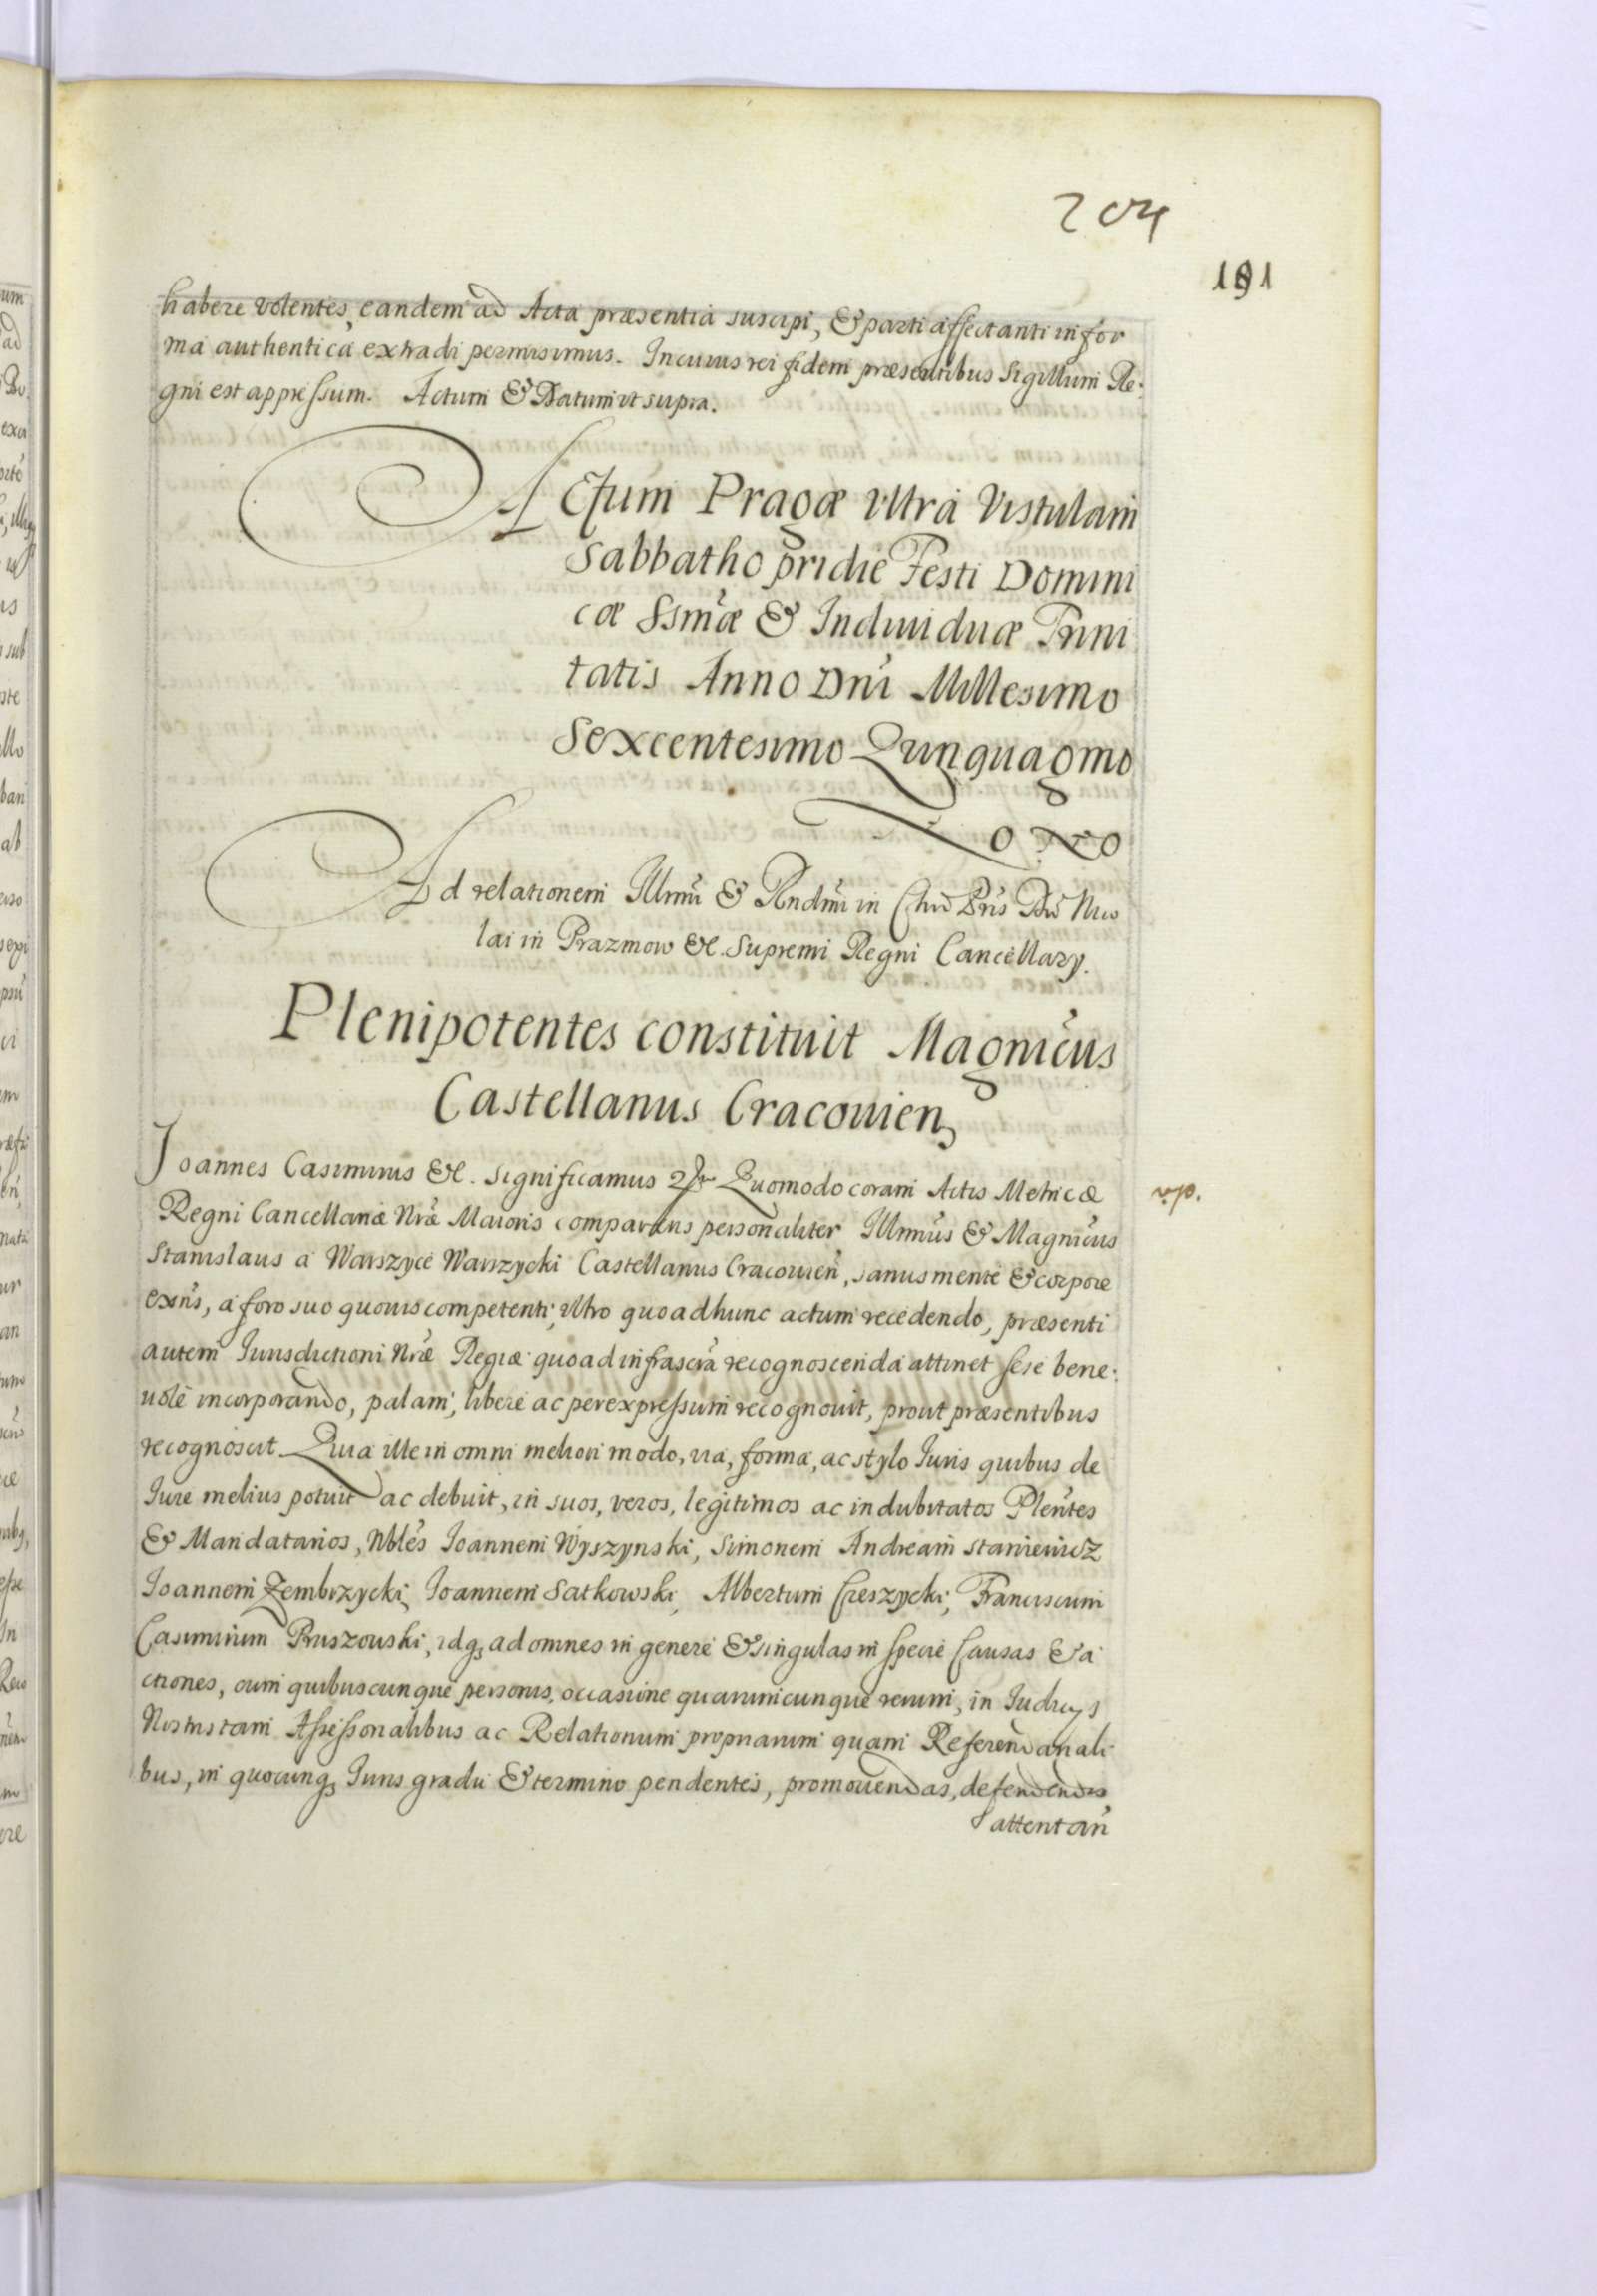 204
191
habere volentes, eandem ad Acta præsentia suscipi, & parti affectanti in for
ma authentica extradi permisimus. In cuius rei fidem præsentibus Sigillum Re:
gni est appressum. Actum & Datum ut supra.
Actum Pragæ ultra Vistulam
Sabbatho pridie Festi Domini
cæ Ssmæ & Individuæ Trini
tatis Anno Dni Millesimo
Sexcentesimo Quinquagmo
Ad relationem Illmi & Rndmi in Chro Pris Dni Nico
lai in Prazmow &c. Supremi Regni Cancellarÿ.
Plenipotentes constituit Magnicus
Castellanus Cracovien,
Joannes Casimirus &c. Significamus Quomodo coram Actis Metricæ
v.p.
Regni Cancellariæ Nræ Maioris comparens personaliter Illmus & Magnicus
Stanislaus a Warszyce Warszycki Castellanus Cracovien, sanus mente & corpore
exns, a foro suo quovis competenti, ultro quoad hunc actum recedendo, præsenti
autem Jurisdictioni Nræ Regiæ quoad infrascra recognoscenda attinet sese bene:
vole incorporando, palam, libere ac per expressum recognovit, prout præsentibus
recognoscit. Quia ille in omni meliori modo, via, forma, ac stylo Juris quibus de
Jure melius potuit ac debuit, in suos, veros, legitimos ac indubitatos Plentes
& Mandatarios, Nbles Joannem Wyszynski, Simonem Andream Staniewicz
Joannem Zembrzycki, Joannem Satkowski, Albertum Czeszycki, Franciscum
Casimirum Pruszouski, idq, ad omnes in genere & singulas in specie Causas & a
ctiones, cum quibuscunque personis, occasione quarumcunque rerum, in Judicÿs
Nostris tam Assessorialibus ac Relationum propriarum quam Referendariali
bus, in quocunq, Juris gradu & termino pendentes, promovendas, defendendas
attentan